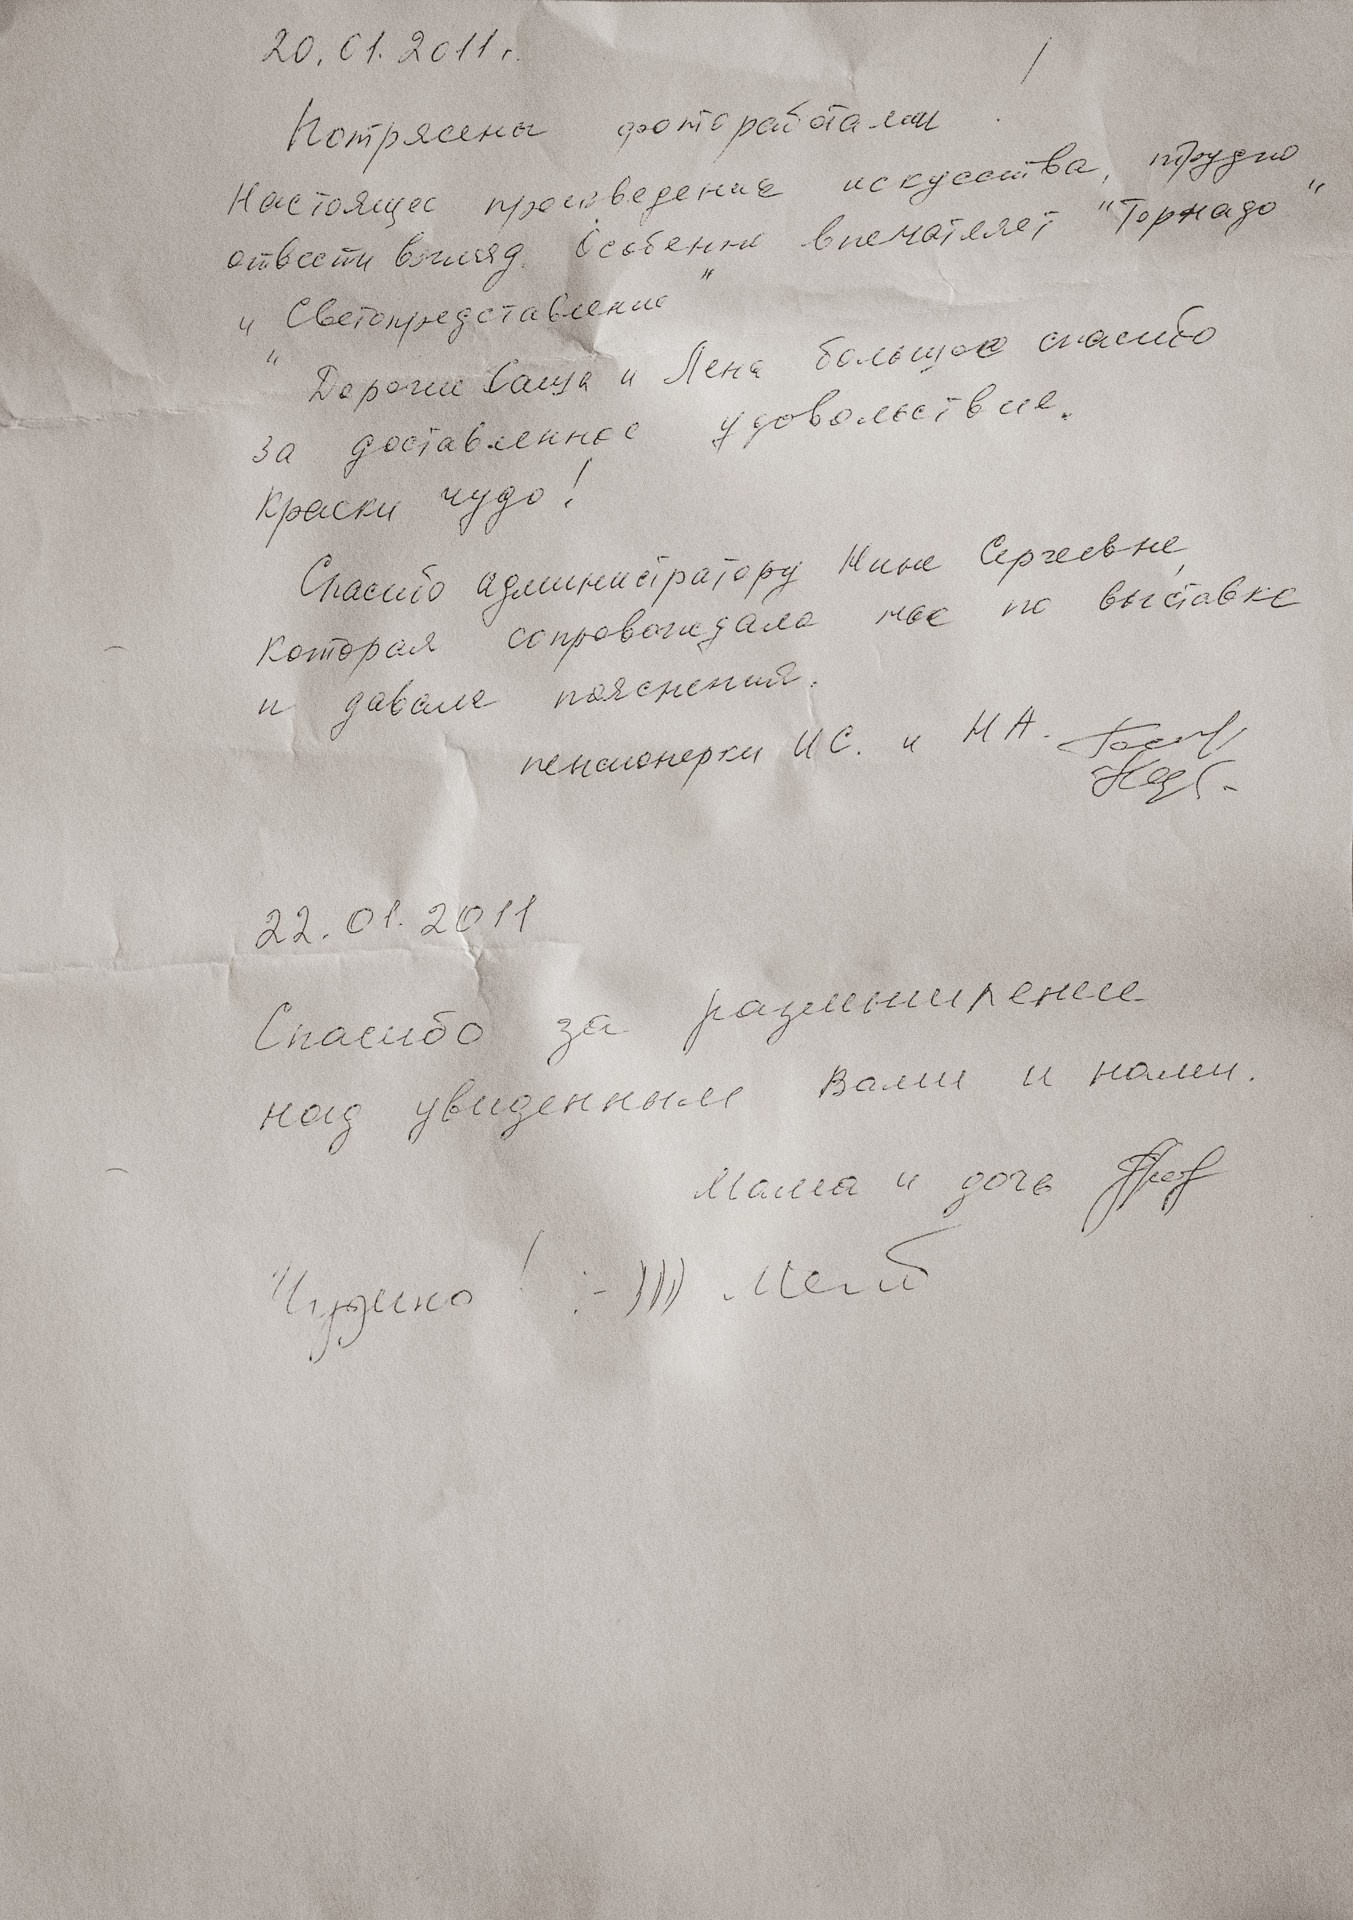 20.01.2011г.
Потрясены фотоработами!
Настоящее произведение искусства, трудно
отвести взгляд. Особенно впечатляет "Торнадо"
и "Светопредставление"
Дорогие Саша и Лена большое спасибо
за доставленное удовольствие.
Краски чудо!
Спасибо администратору Нине Сергеевне,
которая сопровождала нас по выставке
и давала пояснения.
пенсионерки И С. и Н А.
22.01.2011
Спасибо за размышление
над увиденным Вами и нами.
Мама и дочь
Чудно! :-)))